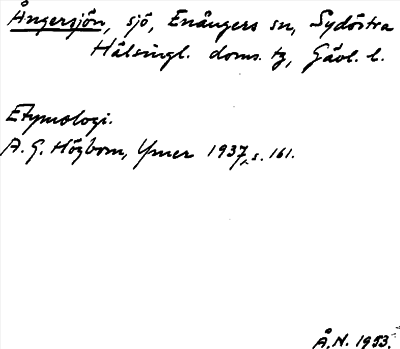 Ångersjön, sjö, Enångers sn, Sydöstra
Hälsingl. doms. tg, Gävl. l.
Etymologi.
A. G. Högbom, Ymer 1937, s. 161.
Å.N. 1953.